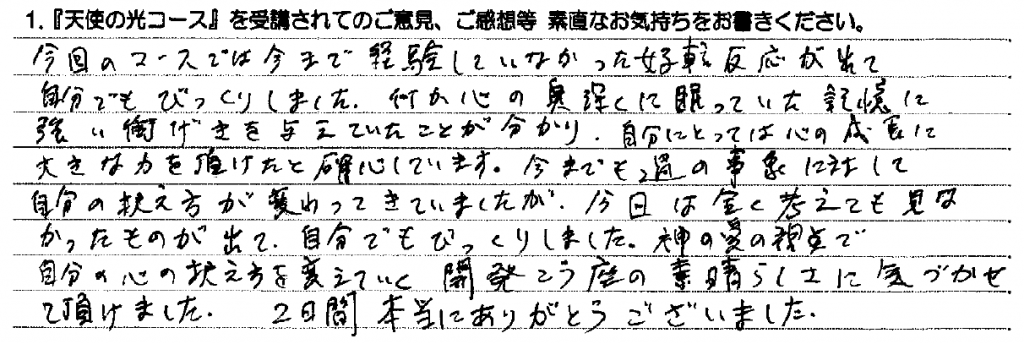 1.『天使の光コース』を受講されてのご意見、ご感想等 素直なお気持ちをお書きください。
今回のコースでは今まで経験していなかった好転反応が出て
自分でもびっくりしました。何か心の奥深くに眠っていた記憶に
強い衝げきを与えていたことが分かり、自分にとっては心の成長に
大きな力を頂けたと確心しています。今までも過の事象に対して
自分の捉え方が変わってきていましたが、今回は全く考えても見な
かったものが出て、自分でもびっくりしました。神の愛の視点で
自分の心の捉え方を変えていく開発こう座の素晴らしさに気づかせ
て頂けました。 2日間 本当にありがとうございました。